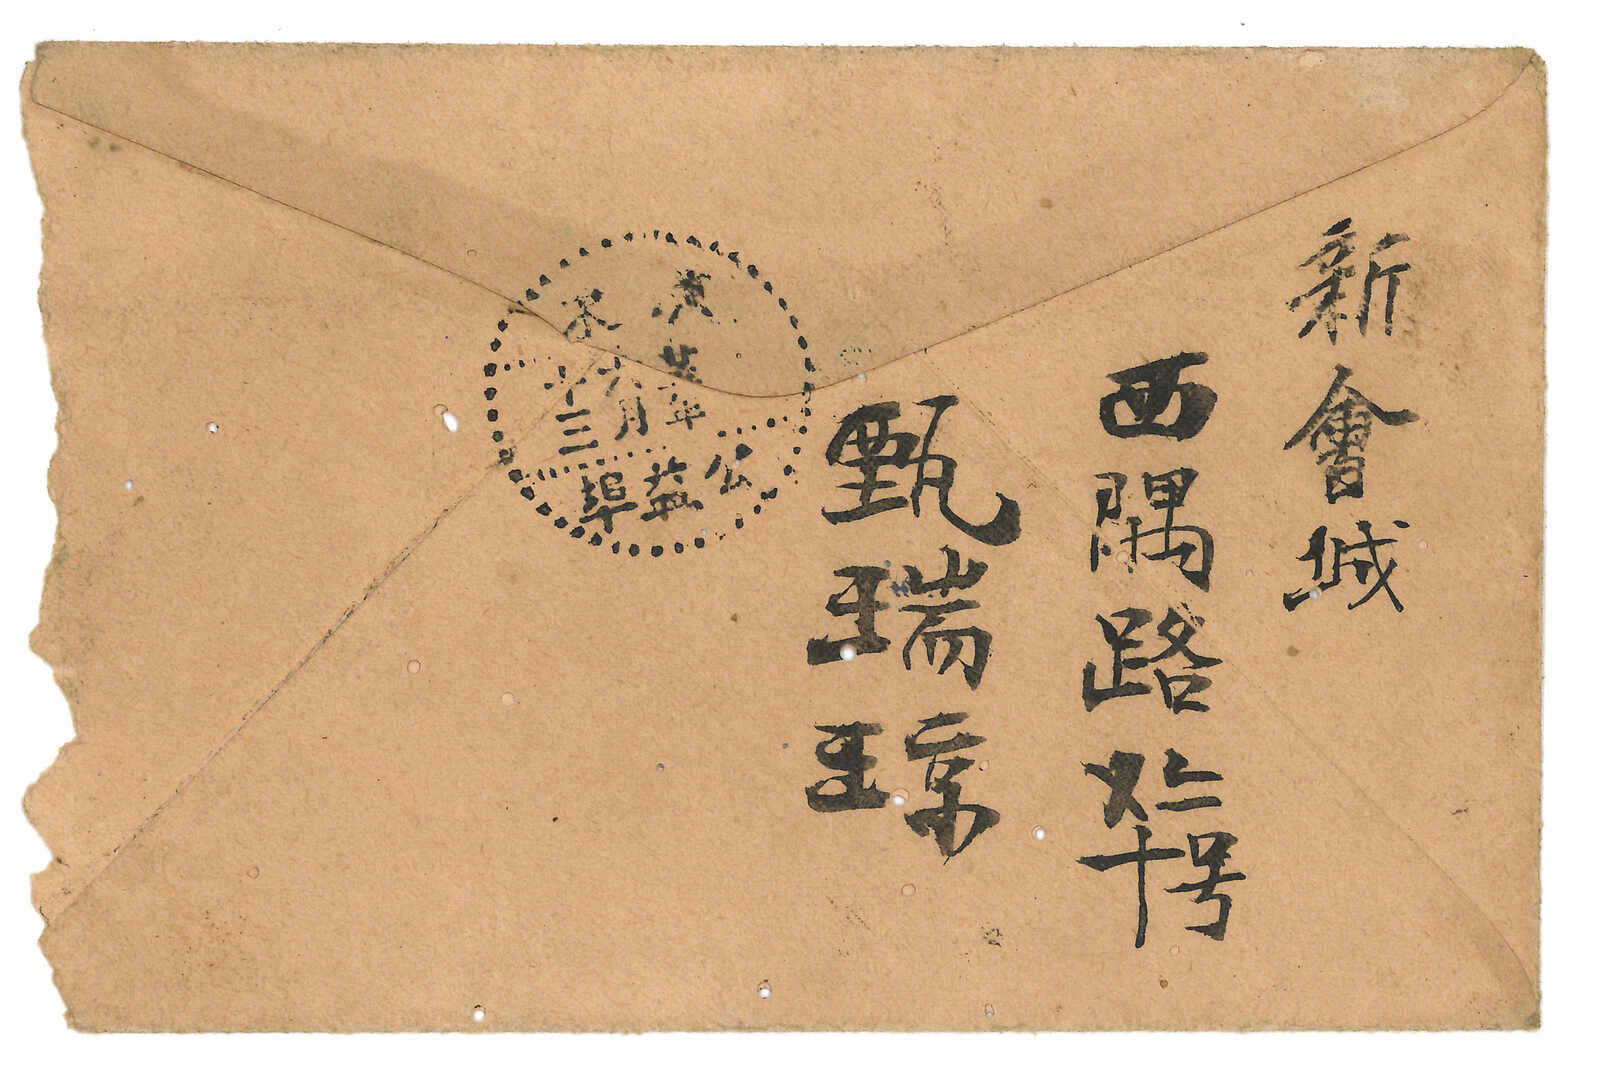 新會城
西隅路〤二十号
甄瑞琼
廣東
年
六月
十三
公益埠